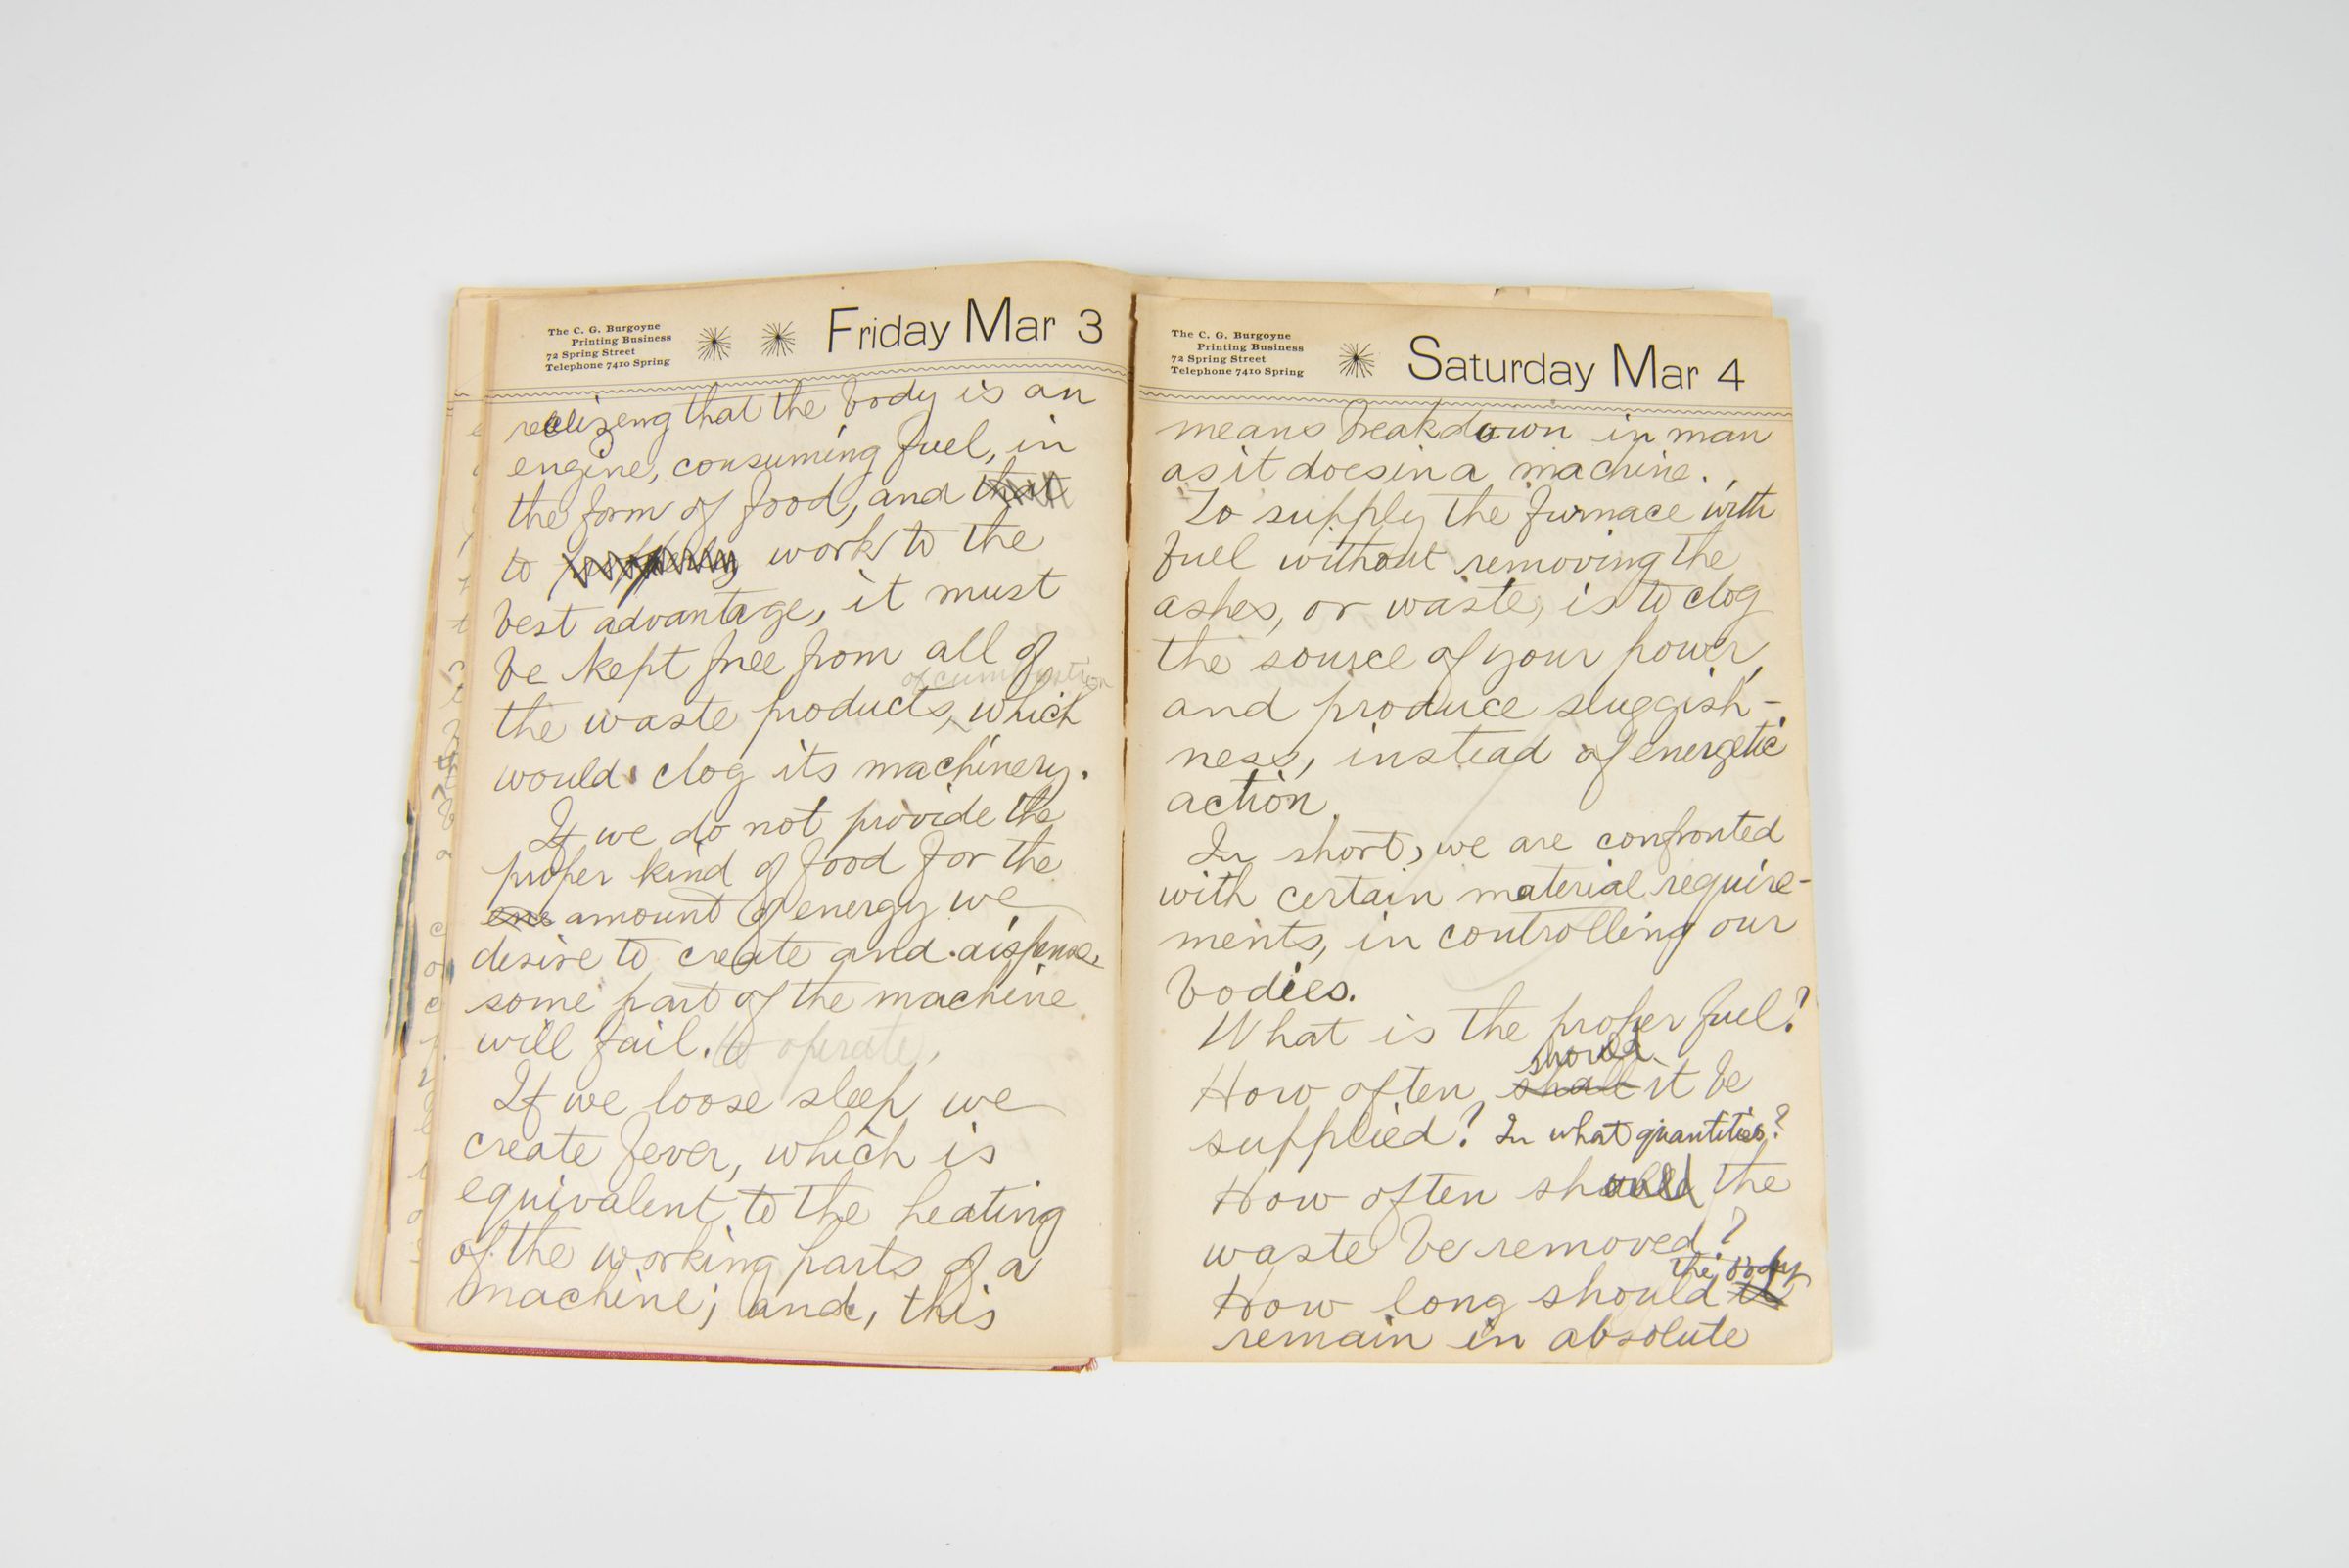 The C. G. Burgoyne
Printing Business
72 Spring Street
Telephone 7410 Spring
Friday Mar 3
realizeng that the body is an
engine, consuming fuel, in
the form of food, and that
to work to the
best advantage, it must
be kept free from all of
of cumbustion
the waste products, which
would clog its machinery.
If we do not provide the
proper kind of food for the
amount of energy we
desire to create and dispense,
some part of the machine
will fail. to operate,
If we loose sleep we
create fever, which is
equivalent to the heating
of the working parts of a
machine; and, this
The C. G. Burgoyne
Printing Business
72 Spring Street
Telephone 7410 Spring
Saturday Mar 4
means breakdown in man
as it does in a machine.
To supply the furnace with
fuel without removing the
ashes, or waste, is to clog
the source of your power,
and produce sluggish-
ness, instead of energetic
action.
In short, we are confronted
with certain material require-
ments, in controlling our
bodies.
What is the proper fuel?
should
How often shall it be
supplied? In what quantities?
How often should the
waste be removed?
the body
How long should it
remain in absolute